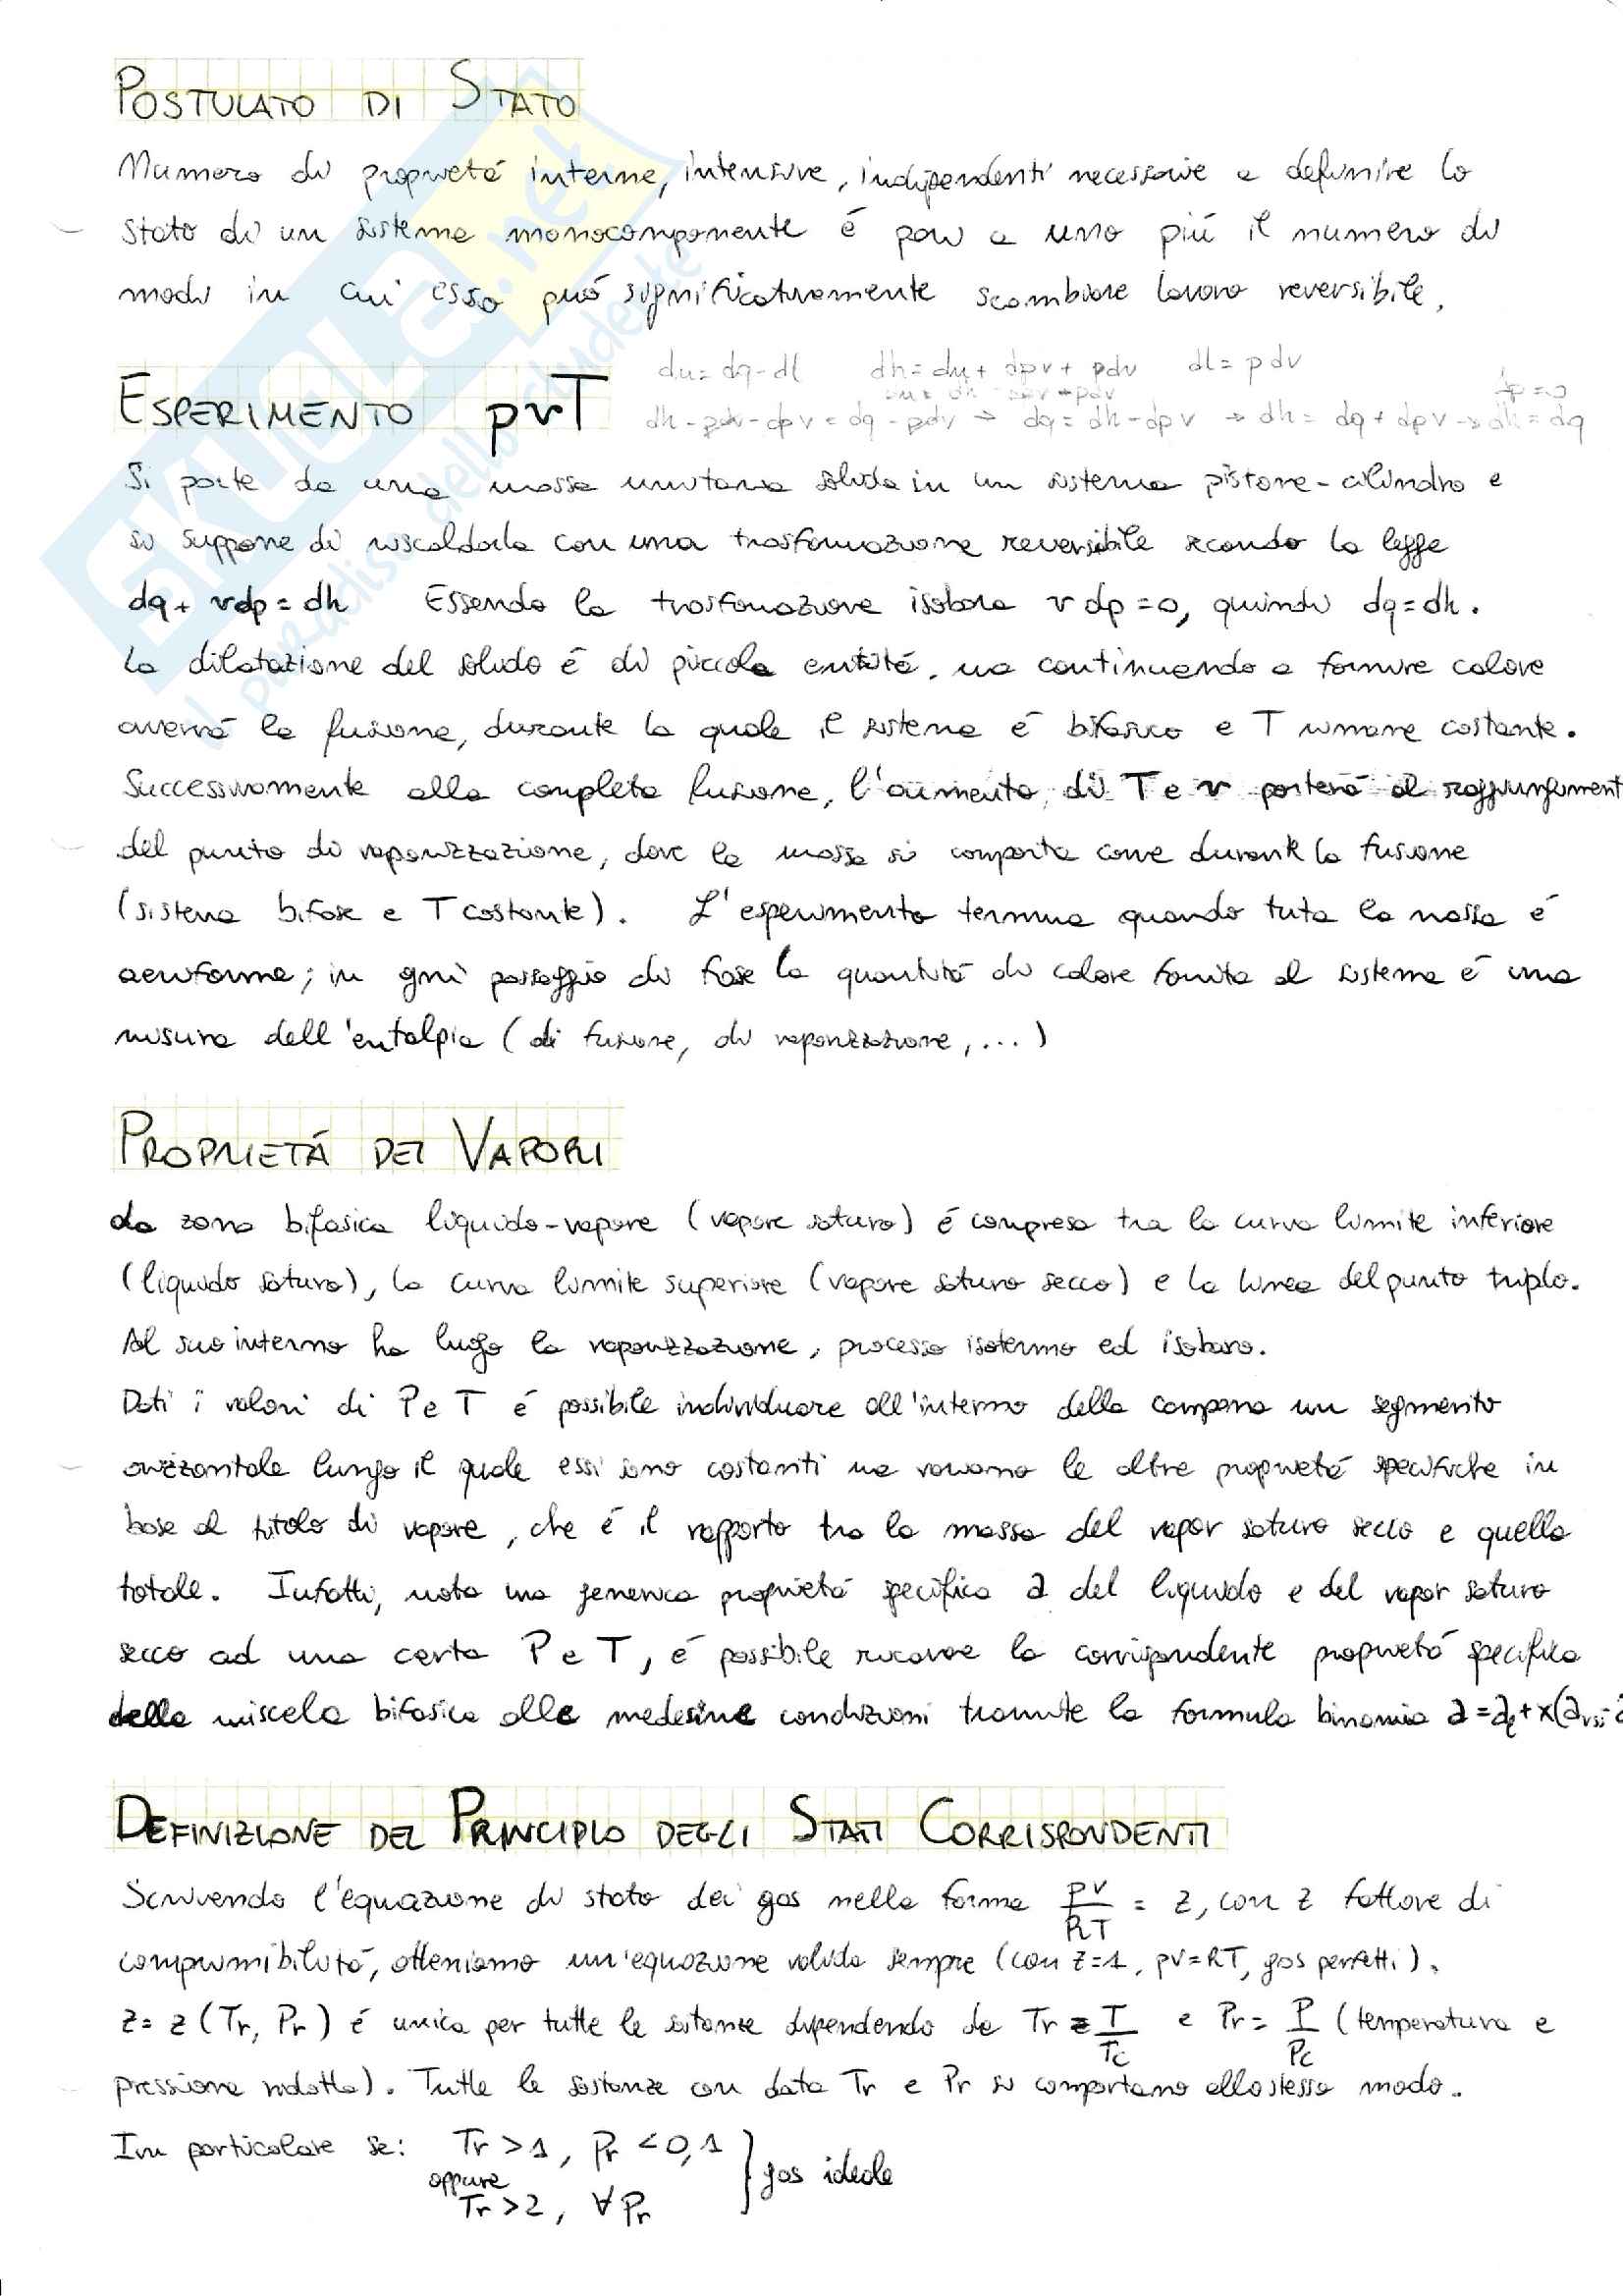 POSTULATO DI STATO
Numero di proprietá interne, intensive, indipendenti necessarie a definire lo
stato di un sistema monocomponente é pari a uno piú il numero di
modi in cui esso puó significativamente scambiare lavoro reversibile.
du = dq - dl   dh = du + dpv + pdv   dl = pdv
dp = 0
ESPERIMENTO pvT
dh - pdv - dpv = dq - pdv → dq = dh - dpv → dh = dq + dpv → dh = dq
Si parte da una massa unitaria solida in un sistema pistone-cilindro e
si suppone di riscaldarla con una trasformazione reversibile secondo la legge
dq + vdp = dh   Essendo la trasformazione isobara vdp = 0, quindi dq = dh.
La dilatazione del solido é di piccola entitá, ma continuando a fornire calore
avverrá la fusione, durante la quale il sistema é bifasico e T rimane costante.
Successivamente alla completa fusione, l'aumento di T e v porterá al raggiungiment
del punto di vaporizzazione, dove la massa si comporta come durante la fusione
(sistema bifase e T costante). L'esperimento termina quando tuta la massa é
aeriforme; in ogni passaggio di fase la quantitá di calore fornita al sistema é una
misura dell'entalpia (di fusione, di vaporizzazione, ...)
PROPRIETÁ DEI VAPORI
La zona bifasica liquido-vapore (vapore saturo) é compresa tra la curva limite inferiore
(liquido saturo), la curva limite superiore (vapore saturo secco) e la linea del punto triplo.
Al suo interno ha luogo la vaporizzazione, processo isotermo ed isobaro.
Dati i valori di P e T é possibile individuare all'interno della campana un segmento
orizzontale lungo il quale essi sono costanti ma variano le altre proprietá specifiche in
base al titolo di vapore, che é il rapporto tra la massa del vapor saturo secco e quella
totale. Infatti, nota una generica proprietá specifica a del liquido e del vapor saturo
secco ad una certa P e T, é possibile ricavare la corrispondente proprietá specifica
della miscela bifasica alle medesime condizioni tramite la formula binomia a = a_l + x(a_vss - a
DEFINIZIONE DEL PRINCIPIO DEGLI STATI CORRISPONDENTI
Scrivendo l'equazione di stato dei gas nella forma pv/RT = z, con z fattore di
comprimibilitá, otteniamo un'equazione valida sempre (con z=1, pv=RT, gas perfetti).
z = z(Tr, Pr) é unica per tutte le sostanze dipendendo da Tr = T/Tc e Pr = P/Pc (temperatura e
pressione ridotta). Tutte le sostanze con data Tr e Pr si comportano allo stesso modo.
In particolare se: Tr > 1, Pr < 0,1
oppure } gas ideale
Tr > 2, ∀ Pr
SKUOLA.net
il paradiso dello studente